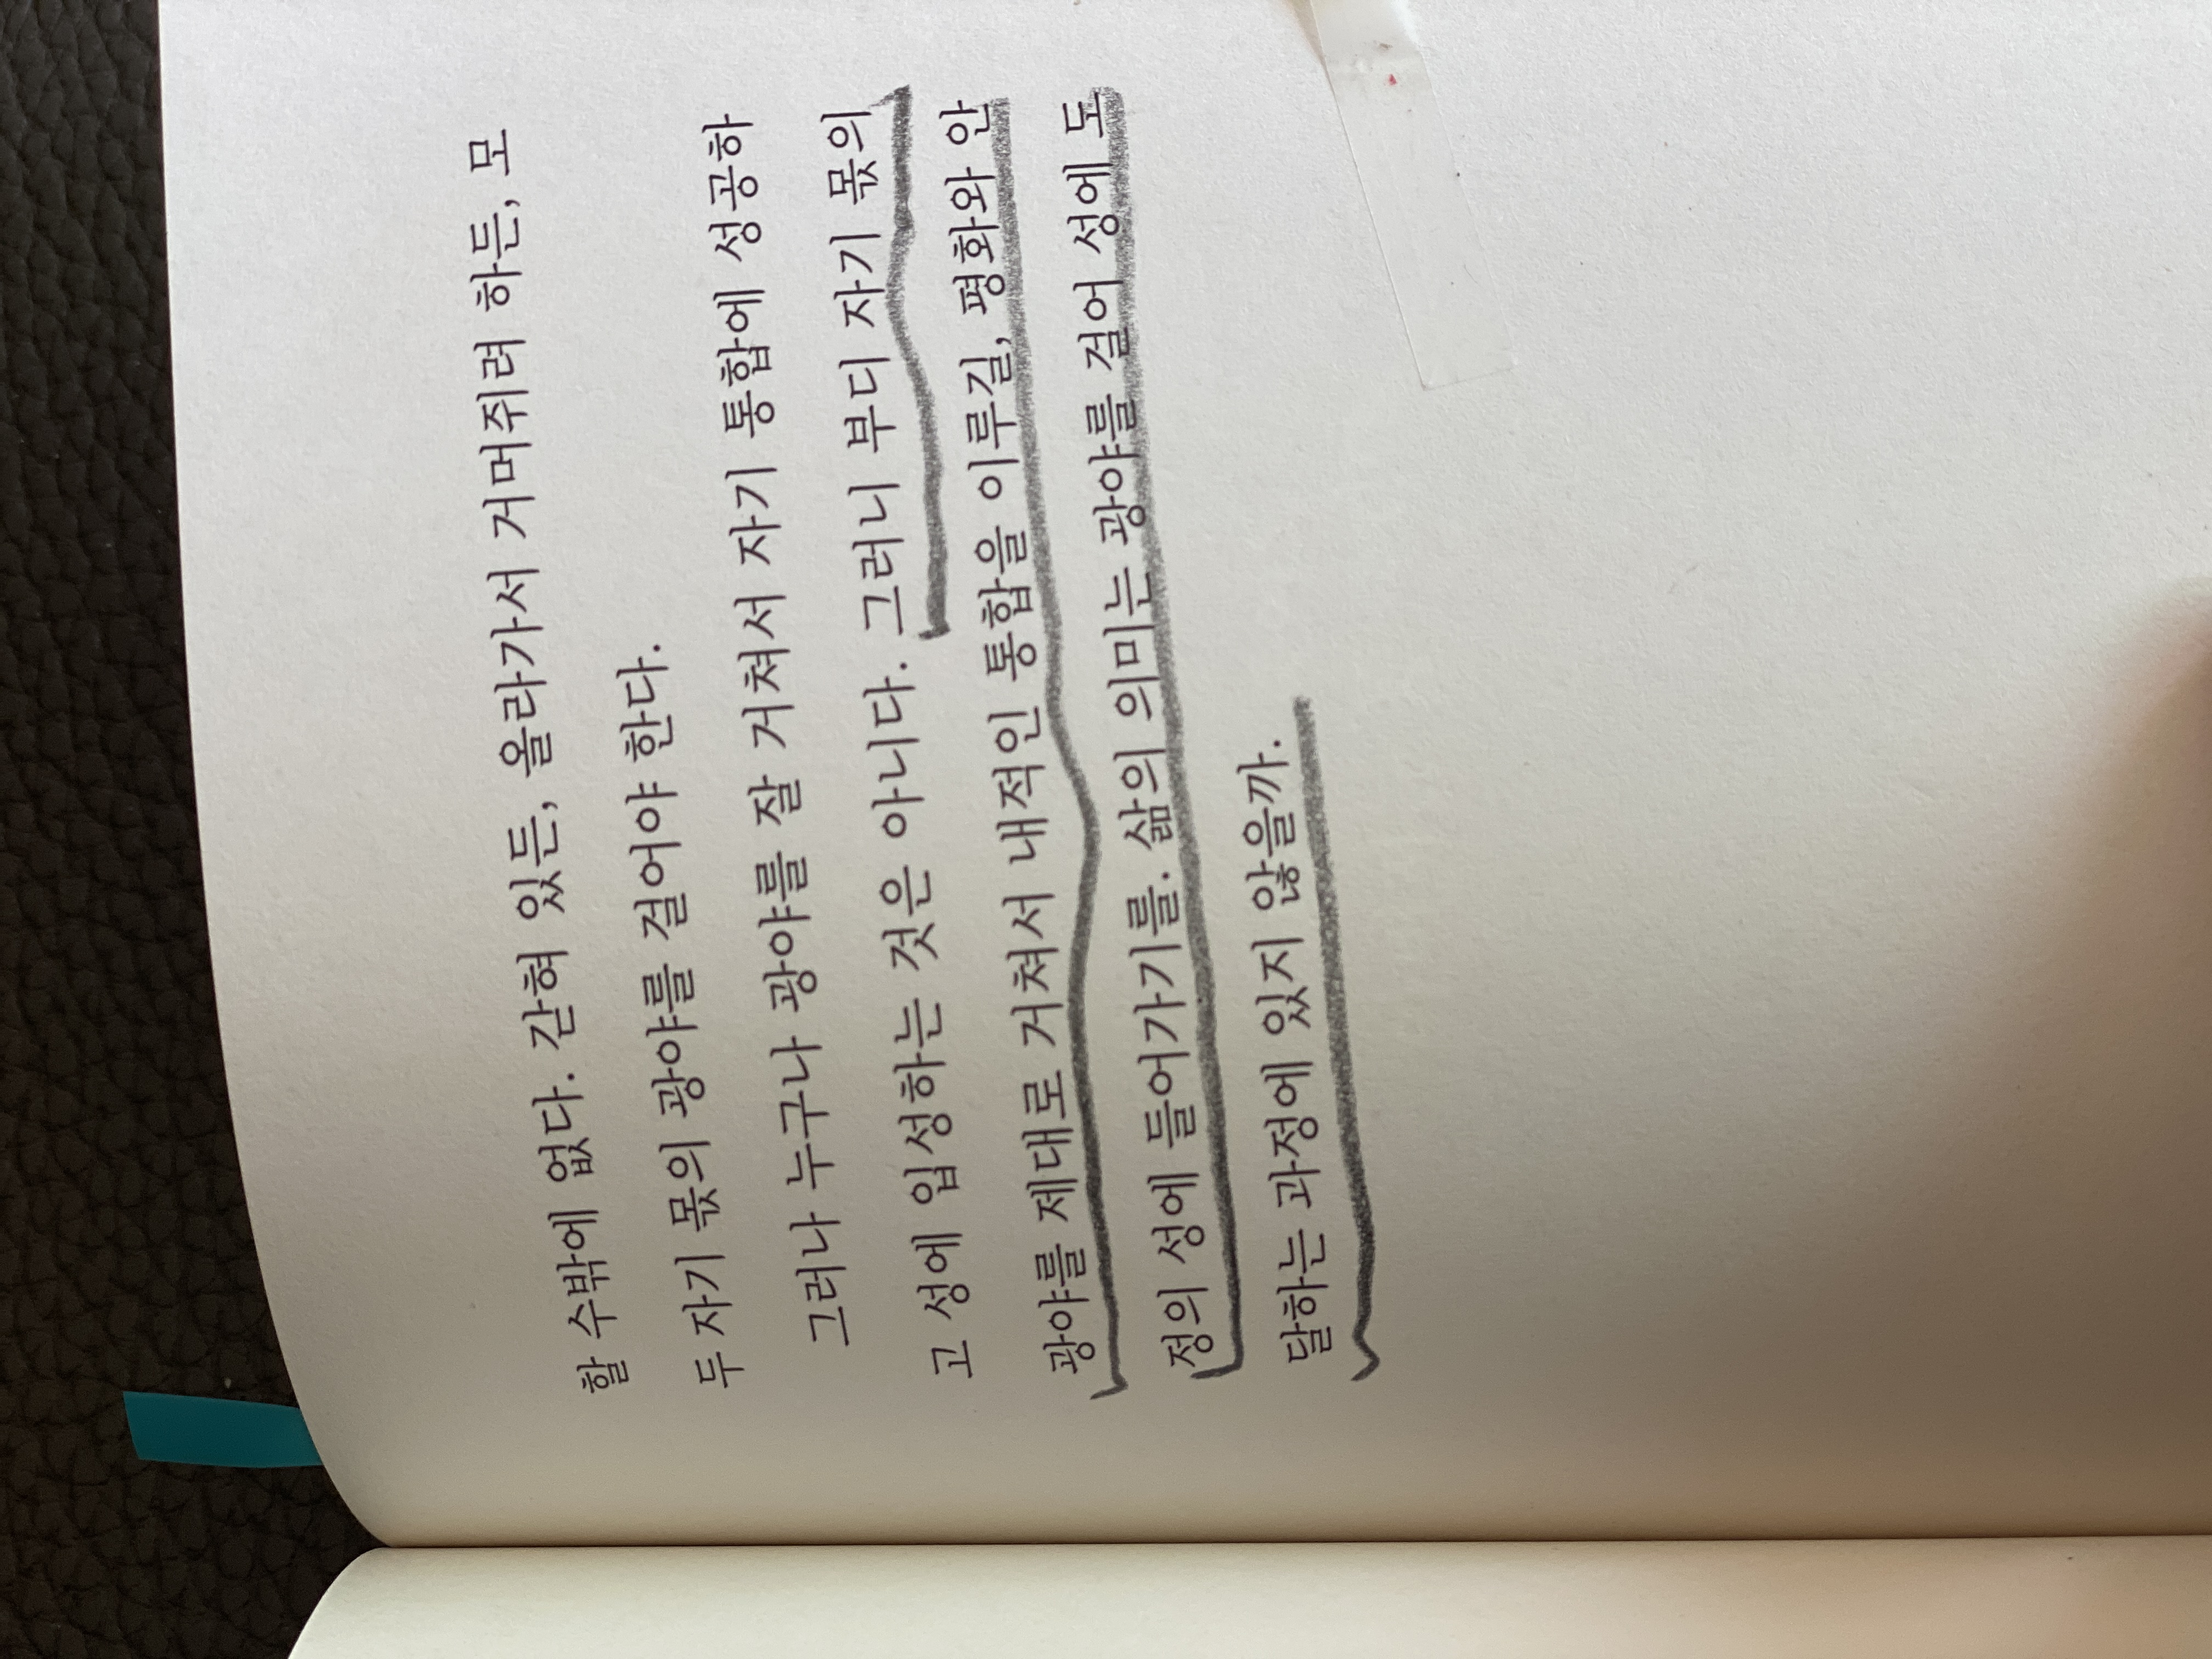 할 수밖에 없다. 갇혀 있든, 올라가서 거머쥐려 하든, 모
두 자기 몫의 광야를 걸어야 한다.
그러나 누구나 광야를 잘 거쳐서 자기 통합에 성공하
고 성에 입성하는 것은 아니다. 그러니 부디 자기 몫의
광야를 제대로 거쳐서 내적인 통합을 이루길, 평화와 안
정의 성에 들어가기를. 삶의 의미는 광야를 걸어 성에 도
달하는 과정에 있지 않을까.